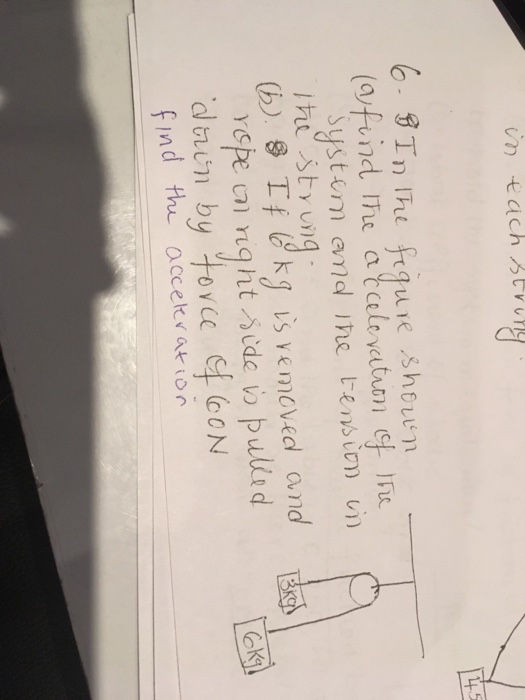 in each string
6. In the figure shown
(a) find the acceleration of the
system and the tension in
the string.
(b) If 6kg is removed and
rope on right side is pulled
down by force of 60N
find the acceleration
3kg
6kg
45